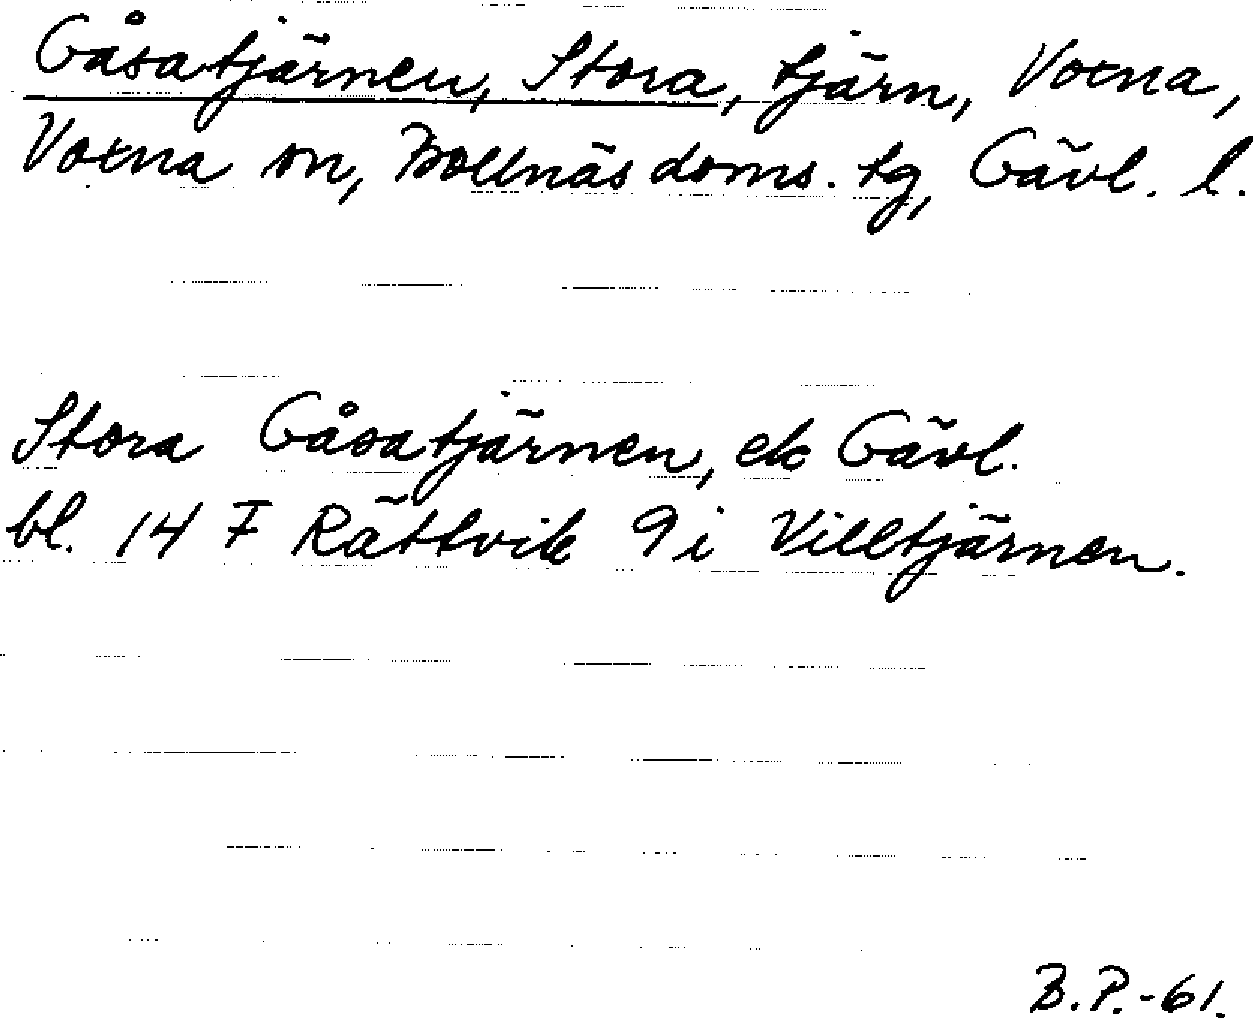 Gåsatjärnen, Stora, tjärn, Voxna,
Voxna sn, Bollnäs doms. tg, Gävl. l.
Stora Gåsatjärnen, ek Gävl.
bl. 14 F Rättvik 9 i Villtjärnen.
B.P.-61.